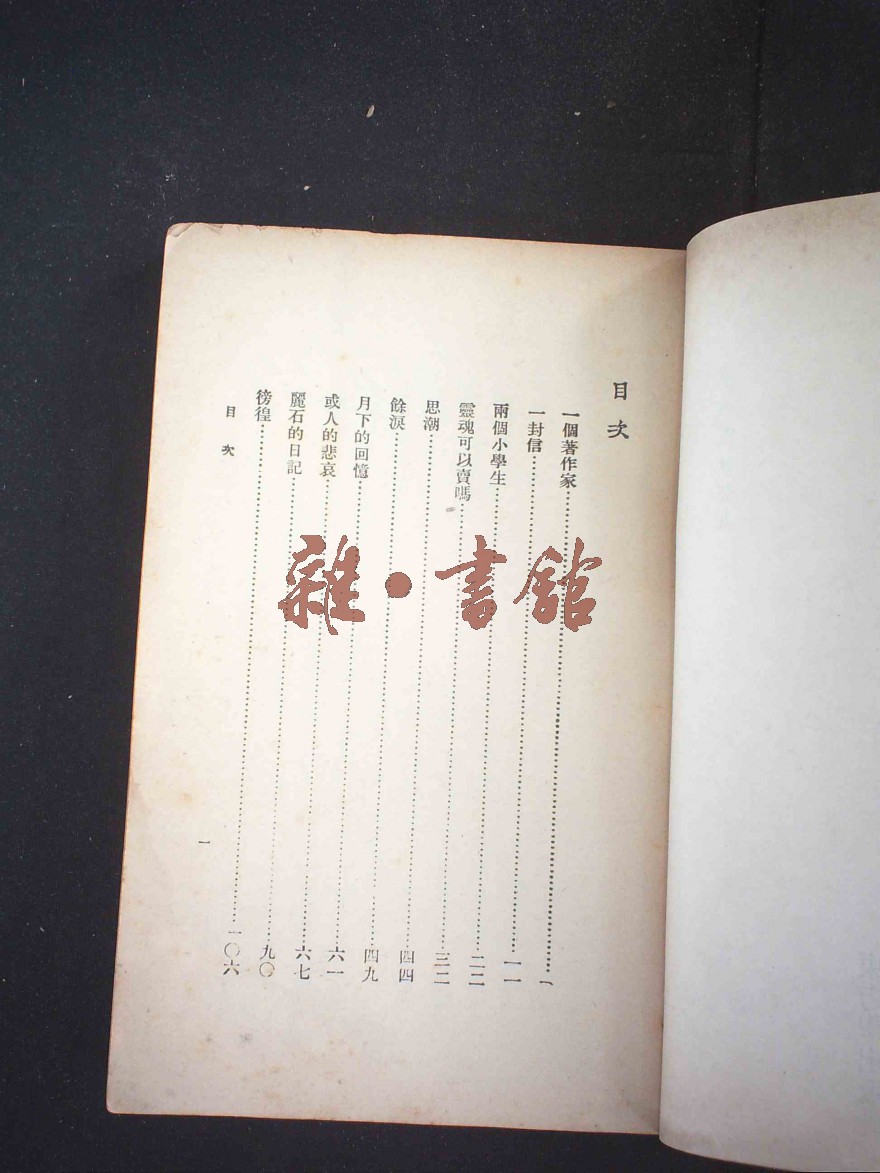 目次
一個著作家……一
一封信……一一
兩個小學生……二二
靈魂可以賣嗎……三二
思潮……四四
餘淚……四九
月下的回憶……六一
或人的悲哀……六七
麗石的日記……九〇
徬徨……一〇六
目次
一
雜·書館